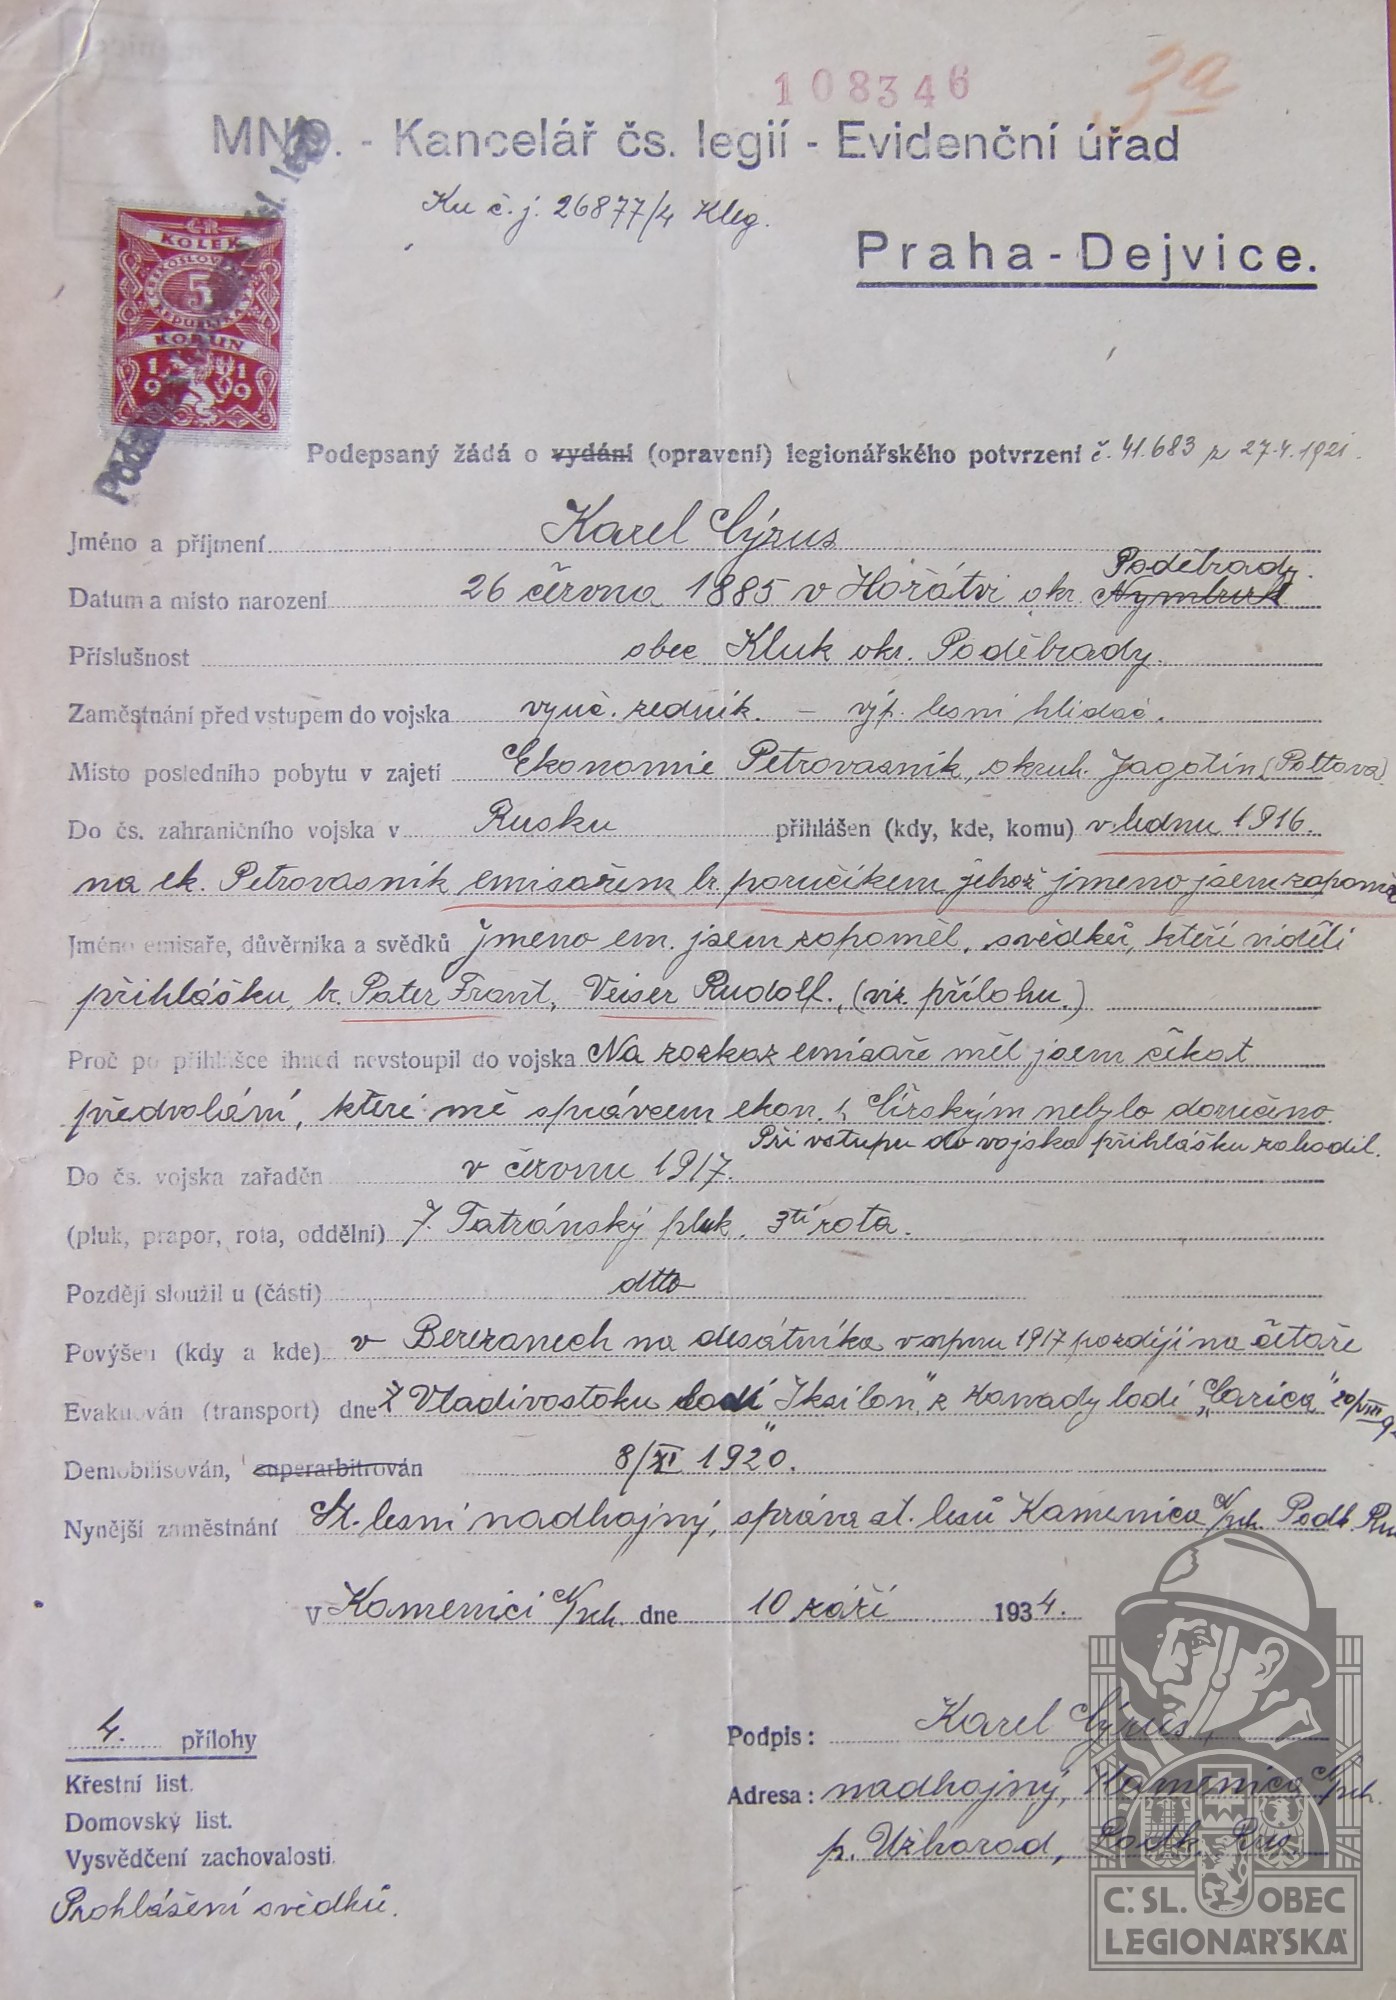 108346
3a
MNO. - Kancelář čs. legií - Evidenční úřad
Ku č. j. 26877/4 Kleg.
Praha - Dejvice.
ČR
KOLEK
ČESKOSLOVENSKÁ
5
REPUBLIKA
KORUN
1919
Podepsaný žádá o vydání (opravení) legionářského potvrzení č. 41.683 z 27.4.1921.
Jméno a příjmení Karel Cýrus
Poděbrady.
Datum a místo narození 26 června 1885 v Hořátvi okr. Nymburk
Příslušnost obec Kluk okr. Poděbrady.
Zaměstnání před vstupem do vojska vyuč. zedník. - výp. lesní hlídač.
Místo posledního pobytu v zajetí Ekonomie Petrovasnik, okruh. Jagotin (Poltava)
Do čs. zahraničního vojska v Rusku přihlášen (kdy, kde, komu) v lednu 1916.
na ek. Petrovasnik emisařem br. poručíkem jehož jmeno jsem zapomě
Jméno emisaře, důvěrníka a svědků jmeno em. jsem zapoměl, svědků, kteří viděli
přihlášku, br. Pater Frant, Veiser Rudolf., (viz. přílohu.)
Proč po přihlášce ihned nevstoupil do vojska Na rozkaz emisaře měl jsem čekat
předvolání, které mě správcem ekon. Círským nebylo doručeno.
Při vstupu do vojska přihlášku zahodil.
Do čs. vojska zařaděn v červnu 1917.
(pluk, prapor, rota, oddělní) 7. Tatránský pluk. 3tí rota.
Později sloužil u (části) dtto
Povýšen (kdy a kde) v Berezanech na desátníka v srpnu 1917 později na četaře
Evakuován (transport) dne z Vladivostoku lodí „Iksilon" z Kanady lodí „Carica" 20/VIII 92
Demobilisován, superarbitrován 8/XI 1920.
Nynější zaměstnání St. lesní nadhajný, správa st. lesů Kamenica N/uh. Podk. Rus
V Kamenici N/uh. dne 10 září 1934.
4. přílohy
Křestní list.
Domovský list.
Vysvědčení zachovalosti.
Prohlášení svědků.
Podpis: Karel Cýrus
Adresa: nadhajný, Kamenica N/uh.
p. Užhorod, Podk. Rus.
Č.SL. OBEC
LEGIONÁŘSKÁ